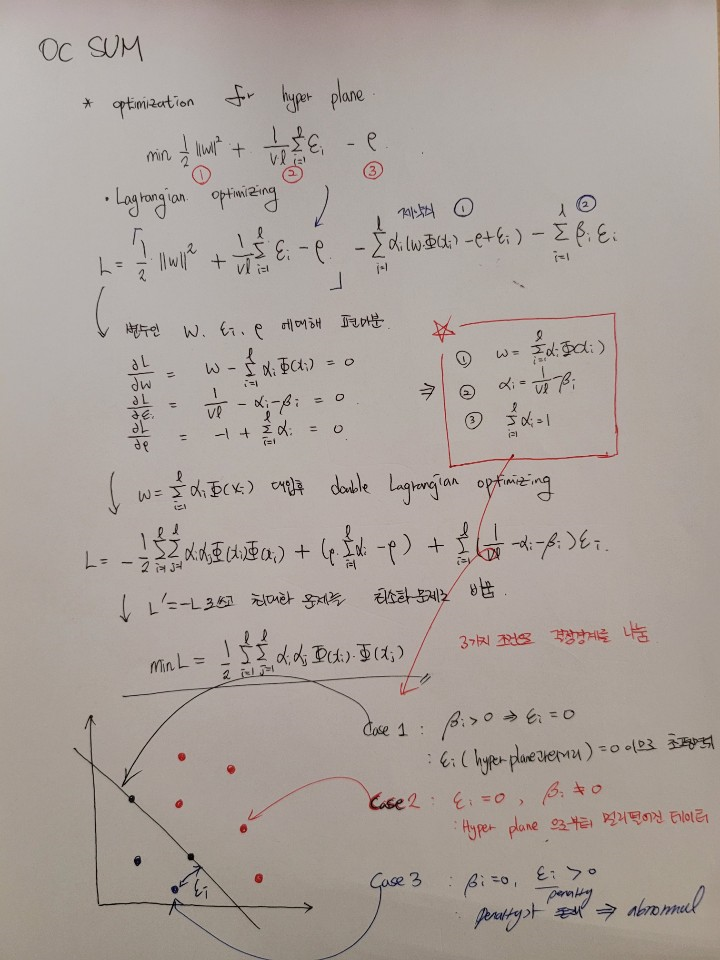 OC SUM
* optimization for hyper plane.
min 1/2 ||w||² + 1/νl Σ_{i=1}^{l} ξi - ρ
① ② ③
• Lagrangian optimizing
제약식 ① ②
L = 1/2 ||w||² + 1/νl Σ_{i=1}^{l} ξi - ρ - Σ_{i=1}^{l} αi(w·Φ(xi) - ρ + ξi) - Σ_{i=1}^{l} βi ξi
변수인 w, ξi, ρ 에대해 편미분.
∂L/∂w = w - Σ_{i=1}^{l} αi Φ(xi) = 0
∂L/∂ξi = 1/νl - αi - βi = 0
∂L/∂ρ = -1 + Σ_{i=1}^{l} αi = 0
⇒
☆
① w = Σ_{i=1}^{l} αi Φ(xi)
② αi = 1/νl - βi
③ Σ_{i=1}^{l} αi = 1
w = Σ_{i=1}^{l} αi Φ(xi) 대입후 double Lagrangian optimizing
L = -1/2 Σ_{i=1}^{l} Σ_{j=1}^{l} αi αj Φ(xi)Φ(xj) + (ρ·Σ_{i=1}^{l} αi - ρ) + Σ_{i=1}^{l} (1/νl - αi - βi)ξi
L' = -L로쓰고 최대화 문제를 최소화문제로 바꿈.
min L = 1/2 Σ_{i=1}^{l} Σ_{j=1}^{l} αi αj Φ(xi)·Φ(xj)
3가지 조건으로 결정경계를 나눔
Case 1 : βi > 0 ⇒ ξi = 0
: ξi (hyper plane과의거리) = 0 이므로
Case 2 : ξi = 0 , βi ≠ 0
: Hyper plane 으로부터 멀리떨어진 데이터
Case 3 : βi = 0, ξi > 0
penalty
: penalty가 ⇒ abnormal
ξi